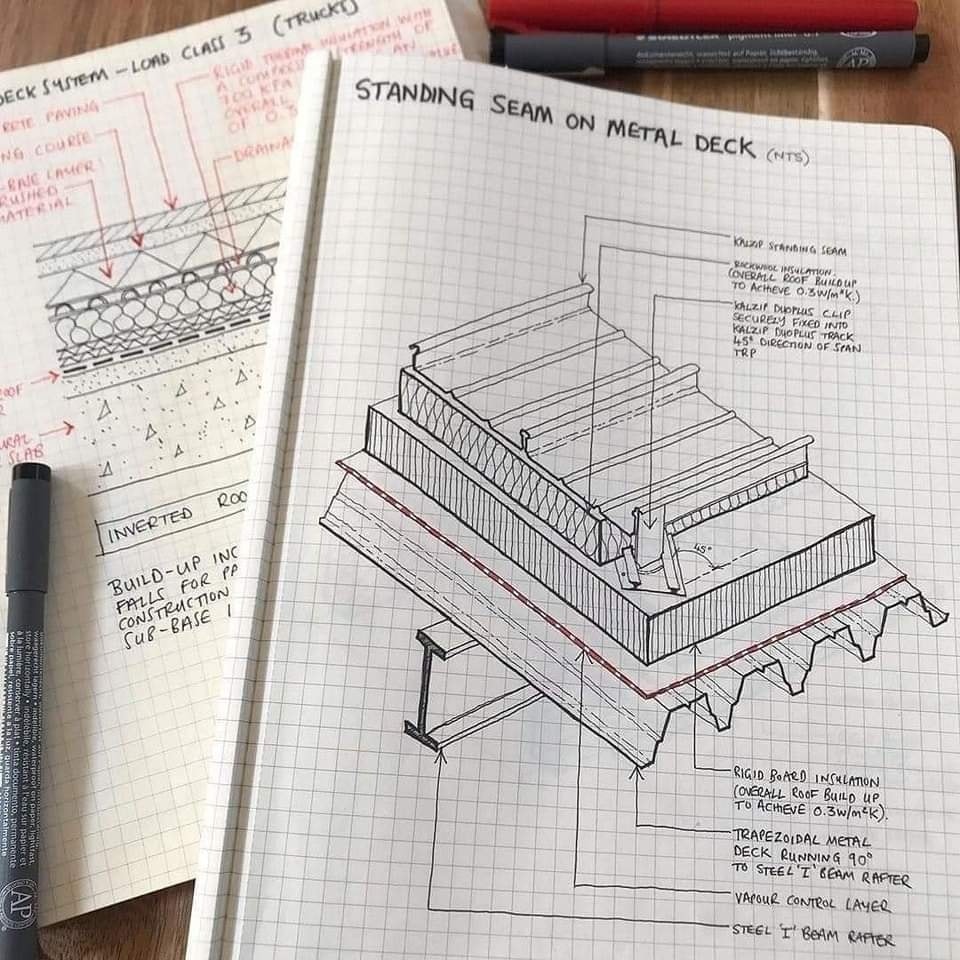 DECK SYSTEM - LOAD CLASS 3 (TRUCKS)
RIGID THERMAL INSULATION WITH
STRENGTH OF
OVERALL
PAVING
COURSE
LAYER
MATERIAL
SLAB
INVERTED ROO
BUILD-UP INC
FALLS FOR PA
CONSTRUCTION
SUB-BASE
STAEDTLER pigment liner
STANDING SEAM ON METAL DECK (NTS)
KALZIP STANDING SEAM
ROCKWOOL INSULATION.
(OVERALL ROOF BUILD UP
TO ACHIEVE 0.3W/m²K.)
KALZIP DUOPLUS CLIP
SECURELY FIXED INTO
KALZIP DUOPLUS TRACK
45° DIRECTION OF SPAN
TRP
45°
RIGID BOARD INSULATION
(OVERALL ROOF BUILD UP
TO ACHIEVE 0.3W/m²K).
TRAPEZOIDAL METAL
DECK RUNNING 90°
TO STEEL 'I' BEAM RAFTER
VAPOUR CONTROL LAYER
STEEL 'I' BEAM RAFTER
AP
AP